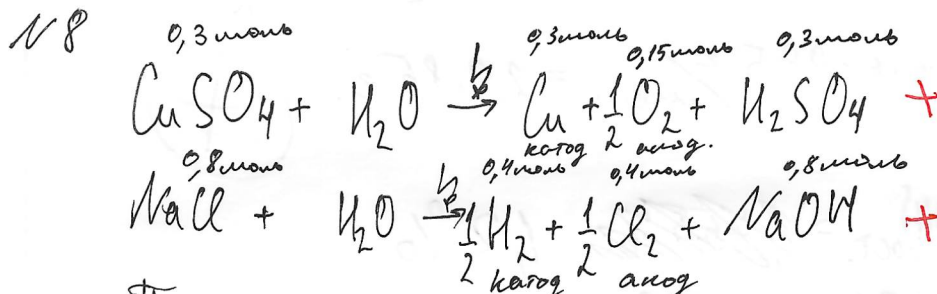 N 8
0,3 моль 0,3 моль 0,15 моль 0,3 моль
CuSO4 + H2O → Cu + 1/2 O2 + H2SO4 +
катод анод.
0,8 моль 0,4 моль 0,4 моль 0,8 моль
NaCl + H2O → 1/2 H2 + 1/2 Cl2 + NaOH +
катод анод